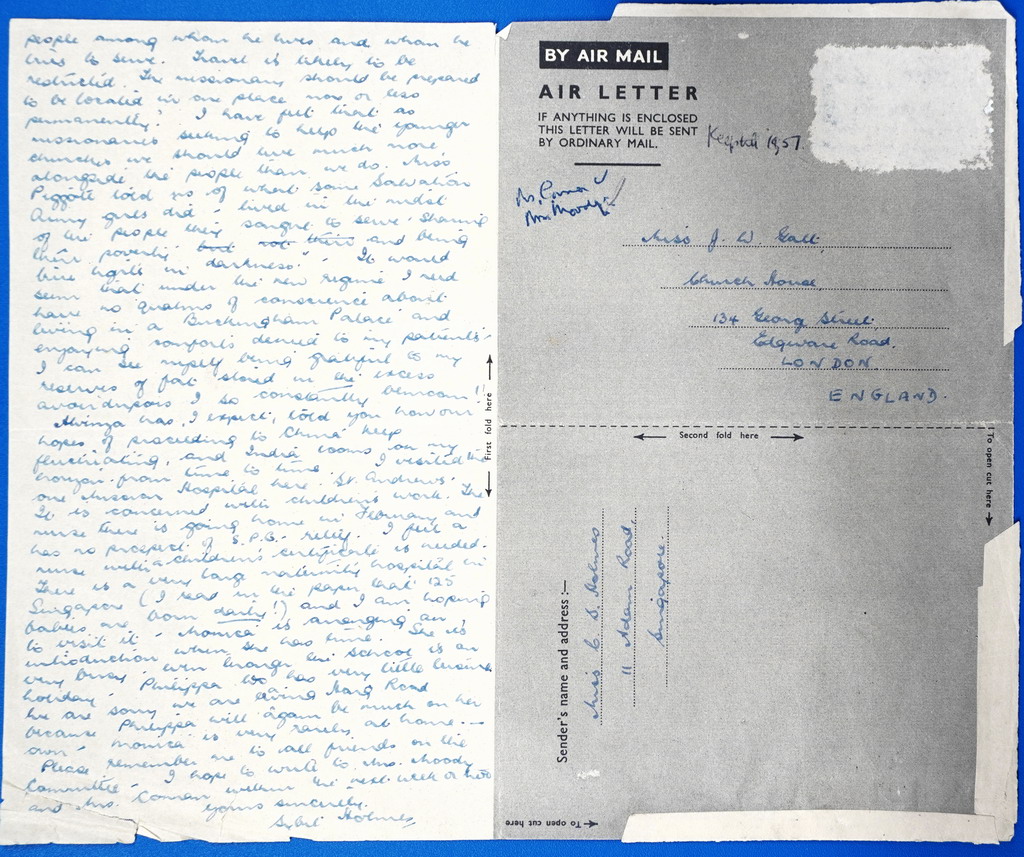 people among whom he lives and whom he
tries to serve. Travel is likely to be
restricted. The missionary should be prepared
to be located in one place more or less
permanently." I have felt that as
missionaries seeking to help the younger
churches we should live much more
alongside the people than we do. Miss
Piggott told us of what some Salvation
Army girls did - lived in the midst
of the people they sought to serve - sharing
their poverty but not theirs and being
bine lights in darkness! It would
seem that under the new regime I need
have no qualms of conscience about
living in a Buckingham Palace and
enjoying comforts denied to my patients!
I can see myself being grateful to my
reserves of fat stored in the excess
avoirdupois I so constantly bemoan!
Alwinza has, I expect, told you how our
hopes of proceeding to China keep
fluctuating, and India looms on my
horizon from time to time. I visited the
one Mission Hospital here. St. Andrews'.
It is concerned with children's work. The
nurse there is going home in February and
has no prospect of S.P.G. relief. I feel a
nurse with a children's certificate is needed.
There is a very large maternity hospital in
Singapore (I read in the paper that 125
babies are born daily!) and I am hoping
to visit it - Monica is arranging an
introduction when she has time. She is
very busy Philippa too has very little leisure
holiday
We are sorry we are leaving Nanq Road
because Philippa will again be much on her
own - Monica is very rarely at home.
Please remember me to all friends on the
Committee - I hope to write to Mrs. Moody
and Mrs. Coman within the next week or two
Yours sincerely.
Sybil Holmes
First fold here
BY AIR MAIL
AIR LETTER
IF ANYTHING IS ENCLOSED
THIS LETTER WILL BE SENT
BY ORDINARY MAIL.
1951.
Mrs. Coman ✓
Mrs. Moody ✓
Miss J. W. Galt
Church House
134 Georg Street.
Edgware Road.
LONDON
ENGLAND.
Second fold here
To open cut here
Sender's name and address :—
Miss C. S. Holmes
11 Adam Road
Singapore.
To open cut here